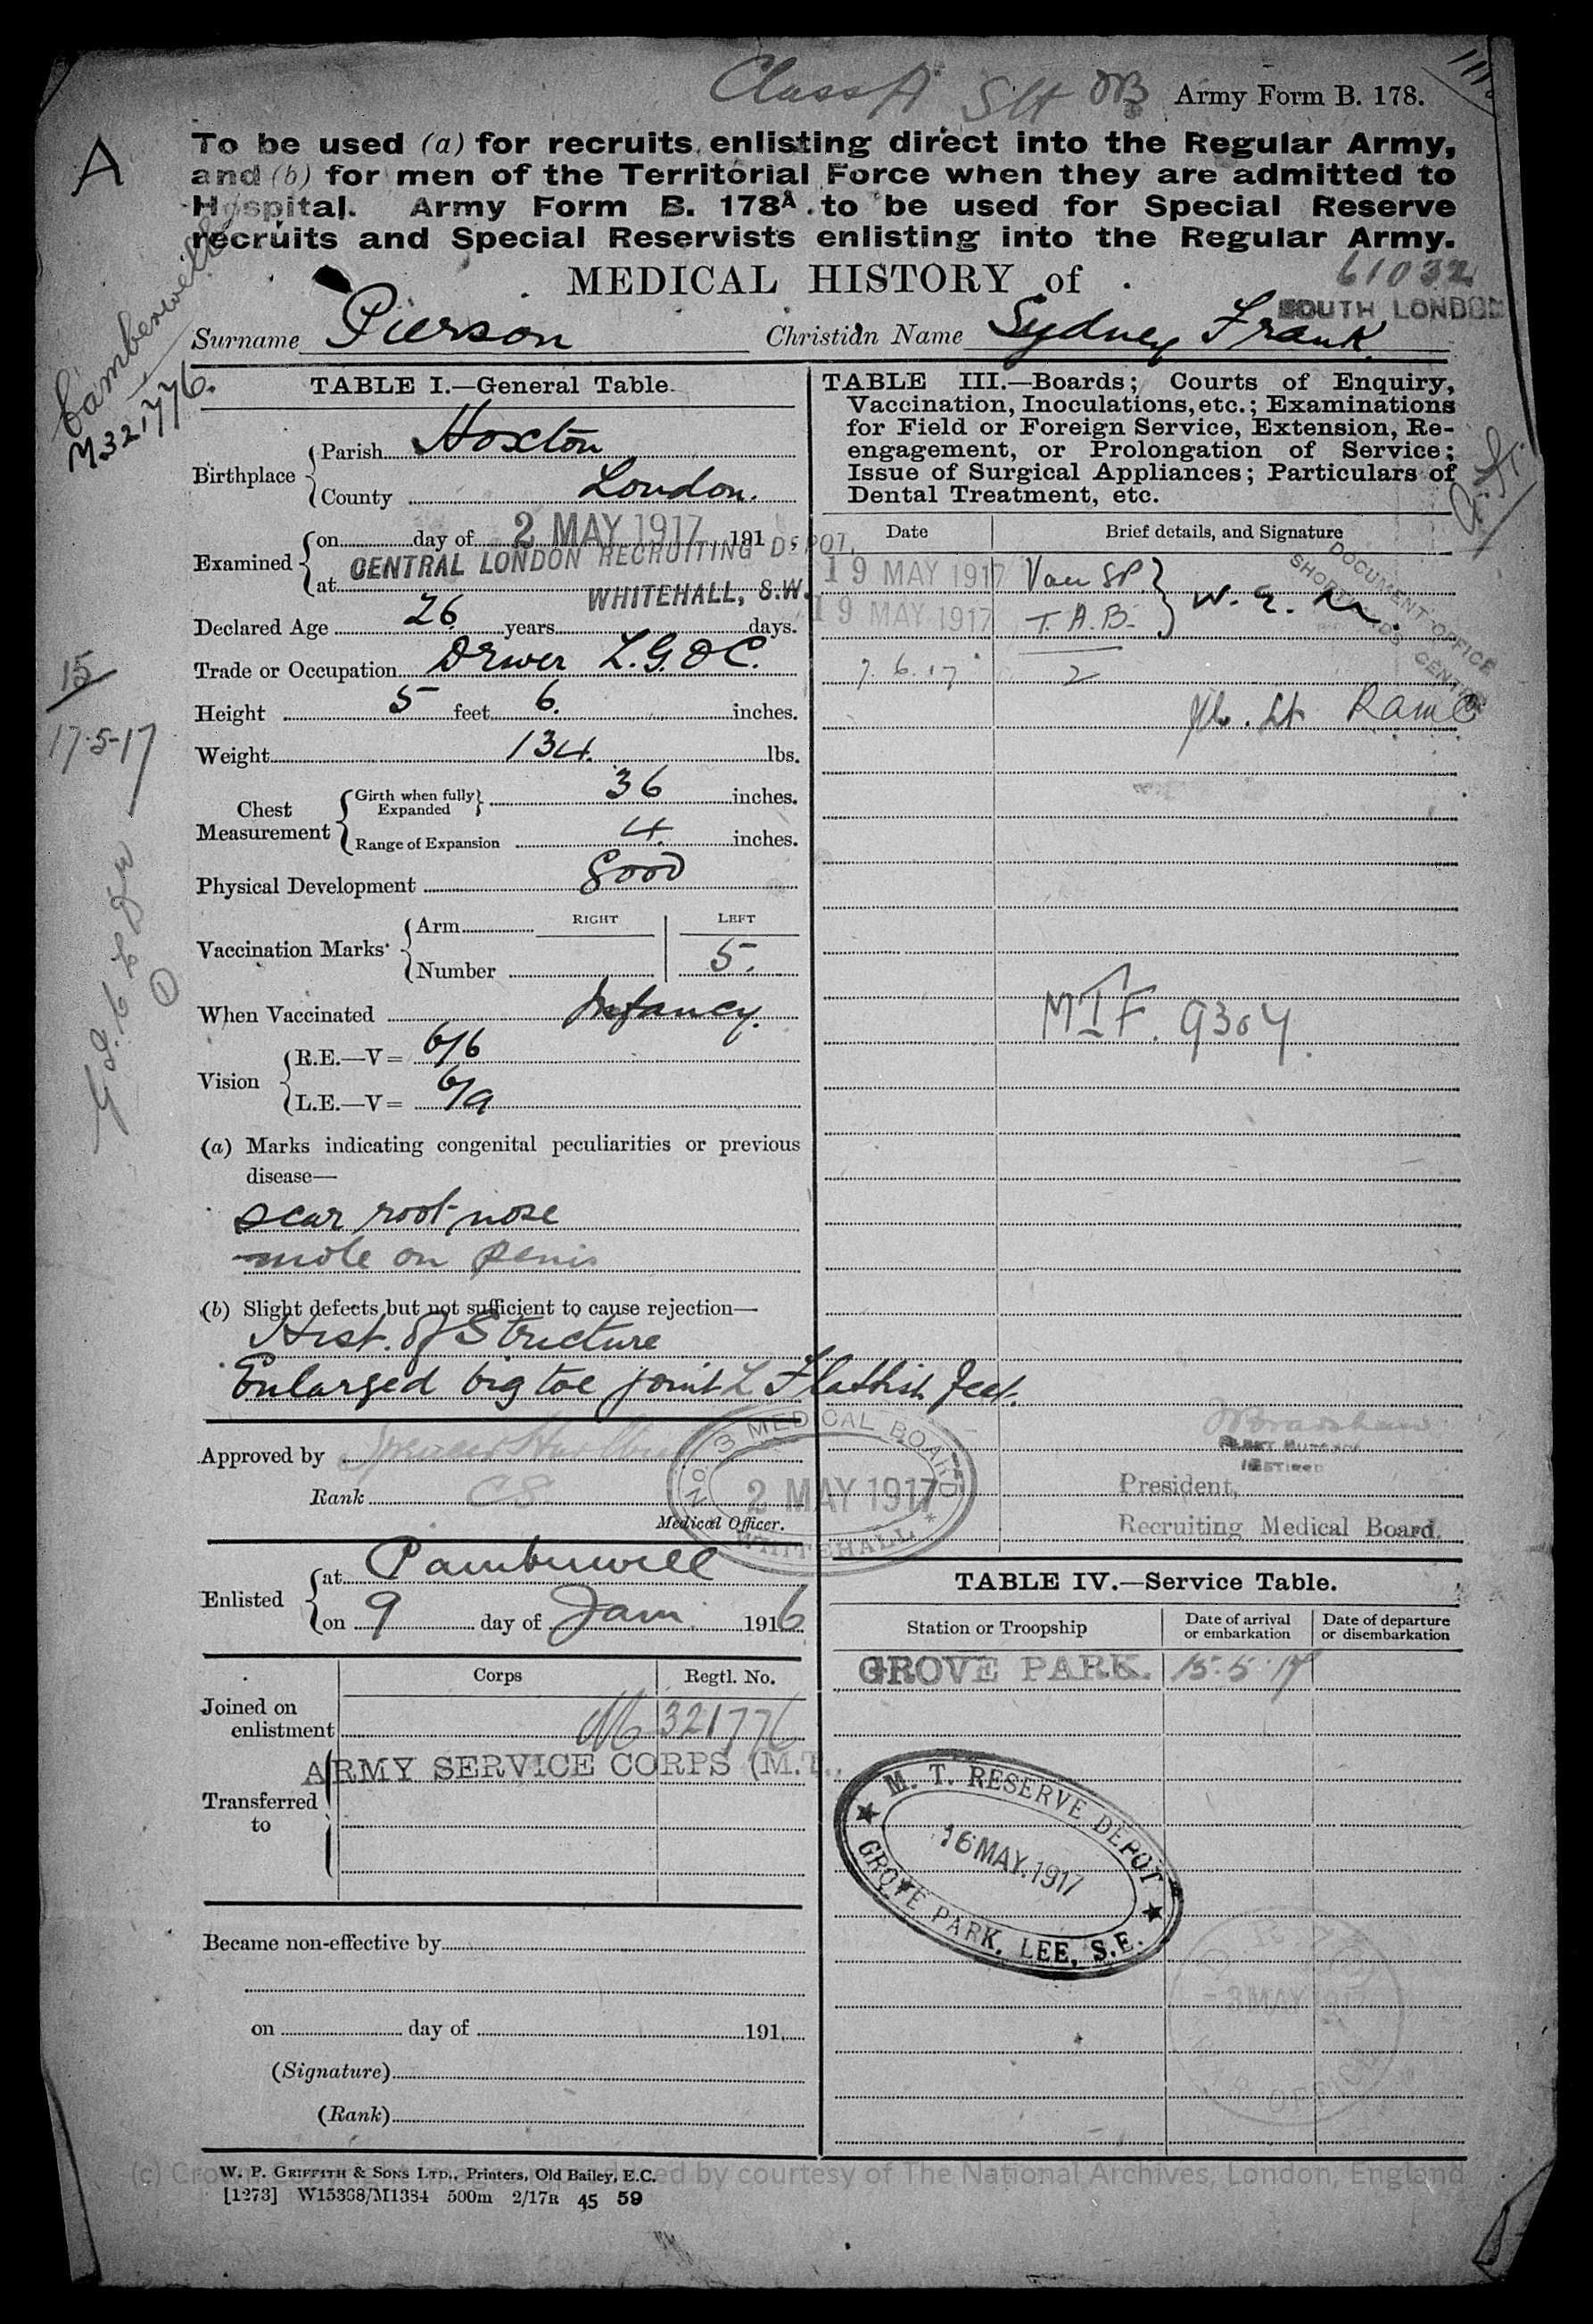 Class A
Army Form B. 178.
A
To be used (a) for recruits enlisting direct into the Regular Army,
and (b) for men of the Territorial Force when they are admitted to
Hospital. Army Form B. 178A to be used for Special Reserve
recruits and Special Reservists enlisting into the Regular Army.
MEDICAL HISTORY of
61032
SOUTH LONDON
Surname Pierson Christian Name Sydney Frank
Camberwell
M321776.
TABLE I.—General Table.
Birthplace
Parish Hoxton
County London.
Examined
on day of 2 MAY 1917 191
at CENTRAL LONDON RECRUITING DEPOT,
WHITEHALL, S.W.
Declared Age 26 years days.
Trade or Occupation Driver L.G.O.C.
15
17-5-17
Height 5 feet 6. inches.
Weight 134. lbs.
Chest Measurement
Girth when fully Expanded 36 inches.
Range of Expansion 4. inches.
Physical Development Good
Vaccination Marks
RIGHT LEFT
Arm
Number 5.
When Vaccinated Infancy.
Vision
R.E.—V= 6/6
L.E.—V= 6/9
(a) Marks indicating congenital peculiarities or previous
disease—
scar root nose
mole on penis
(b) Slight defects but not sufficient to cause rejection—
Hist. of Stricture
Enlarged big toe joint L Flattish feet.
Approved by
Rank
Medical Officer.
No. 3 MEDICAL BOARD
2 MAY 1917
WHITEHALL
Enlisted
at Camberwell
on 9 day of Jan. 1916
Corps Regtl. No.
Joined on
enlistment
M 321776
ARMY SERVICE CORPS (M.T.
Transferred
to
Became non-effective by
on day of 191
(Signature)
(Rank)
TABLE III.—Boards; Courts of Enquiry,
Vaccination, Inoculations, etc.; Examinations
for Field or Foreign Service, Extension, Re-
engagement, or Prolongation of Service;
Issue of Surgical Appliances; Particulars of
Dental Treatment, etc.
Date Brief details, and Signature
DOCUMENT OFFICE
SHORTLANDS CENTRE
19 MAY 1917
19 MAY 1917 T.A.B.
7.6.17 2
Lt RAMC
MTF. 9304.
President,
Recruiting Medical Board.
TABLE IV.—Service Table.
Station or Troopship Date of arrival or embarkation Date of departure or disembarkation
GROVE PARK. 15.5.17
M. T. RESERVE DEPOT
16 MAY. 1917
GROVE PARK, LEE, S.E.
3 MAY
W. P. GRIFFITH & SONS LTD., Printers, Old Bailey, E.C.
[1273] W15368/M1384 500m 2/17R 45 59
courtesy of The National Archives, London, England